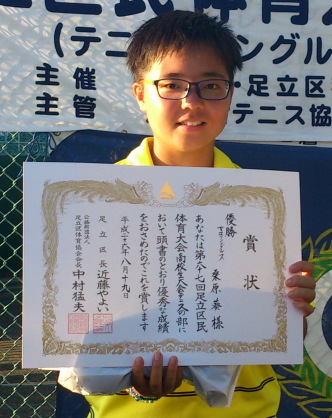 区民体育
(テニ ングル
主催 ・足立区
主管 テニス協
賞状
優勝
桑原 葵 様
あなたは第六十七回足立区民
体育大会
において頭書のとおり優秀な成績
をおさめたのでこれを賞します
平成二十九年八月十九日
足立区長 近藤やよい
公益財団法人
足立区体育協会会長 中村猛夫